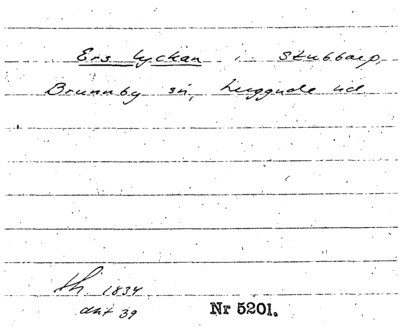 Ers lyckan i Stubbarp,
Brunnby sn, Luggude hd
th 1834
akt 39 Nr 5201.